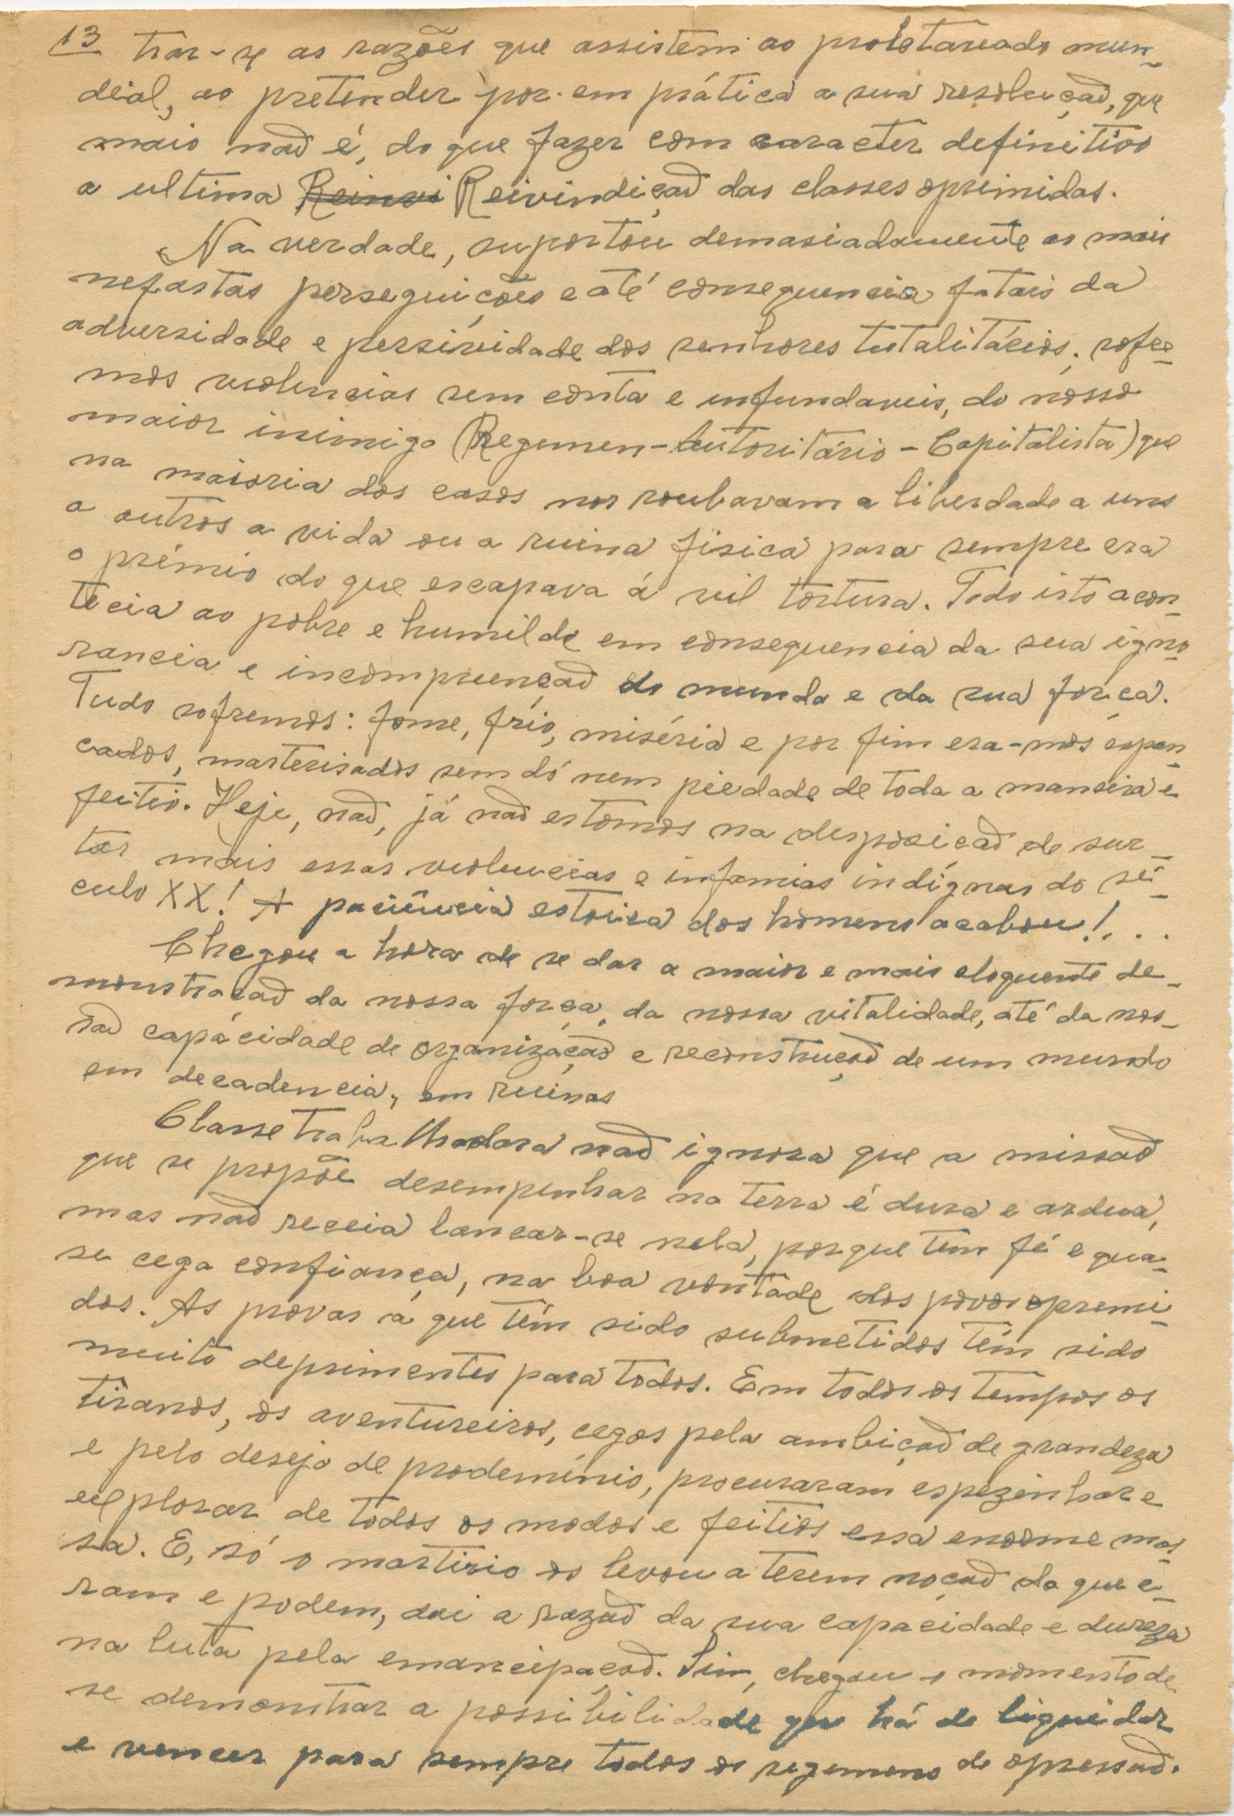 13 trar-se as razões que assistem ao proletareado mun-
deial, ao pretender por em prática a sua resoluçaõ, que
mais naõ é, do que fazer com caracter definitivo
a ultima Reinvi Reivindiçaõ das classes oprimidas.
Na verdade, suportou demasiadamente as mais
nefastas perseguições e até consequencias fatais da
adversidade e persividade dos senhores totalitários; sofre-
mos violencias sem conta e infundaveis, do nosso
maior inimigo (Regemen-Autoritário-Capitalista) que
na maioria dos casos nos roubavam a liberdade a uns
a outros a vida ou a ruina física para sempre era
o prémio do que escapava á vil tortura. Todo isto acon-
tecia ao pobre e humilde em consequencia da sua igno-
rancia e incompreençaõ do mundo e da sua força.
Tudo sofremos: fome, frio, miséria e por fim era-mos espan
cados, marterisados sem dó nem piedade de toda a maneira e
feitio. Heje, naõ, já naõ estamos na desposicaõ de sur-
tar mais essas violencias e infamias indígnas do sé-
culo XX! A paciência estoica dos homens acabou!...
Chegou a hora de se dar a maior e mais eloquente de-
monstraçaõ da nossa força, da nossa vitalidade, até da nos-
sa capácidade de organizaçaõ e reconstruçaõ de um mundo
em decadencia, em ruinas
Classe trabalhadora naõ ignora que a missaõ
que se propõe desempenhar na terra é dura e ardua,
mas naõ receia lançar-se nela, porque tem fé e qua-
se cega confiança, na boa vontade dos povos opremi-
dos. As provas á que têm sido submetidos têm sido
muito deprimentes para todos. Em todos os tempos os
tiranos, os aventureiros, cegos pela ambiçaõ de grandeza
e pelo desejo de prodemínio, procuraram espezinhar e
explorar de todos os modos e feitios essa enorme mas-
sa. E, só o martirio os levou a terem noçaõ do que e-
ram e podem, dai a razaõ da sua capacidade e dureza
na luta pela emancipaçaõ. Sim, chegou o momento de
se demonstrar a possibilidade que há de liquidar
e vencer para sempre todos os regemens de opressaõ.